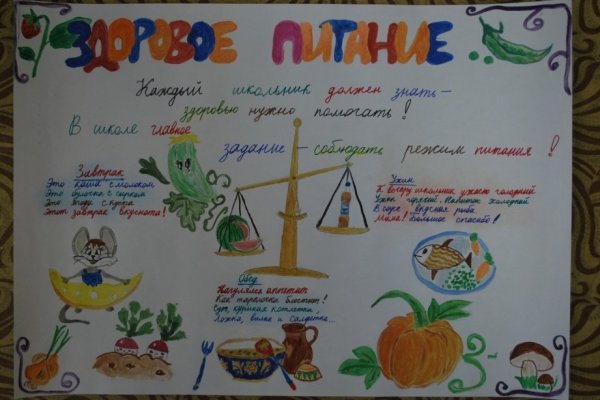 ЗДОРОВОЕ ПИТАНИЕ.
Каждый школьник должен знать –
здоровью нужно помогать!
В школе главное
задание – соблюдать режим питания!
Завтрак
Это каша с молоком
Это булочка с сырком
Это ягоды с куста
Этот завтрак вкуснота!
Ужин
К вечеру школьник ужасно голодный
Ужин Напиток холодный
В соусе вкусная рыба
Мама! Большое спасибо!
Обед
Нагулялся аппетит
Как тарелочка блестит!
Суп, куриная котлетка,
Ложка, вилка и салфетка...